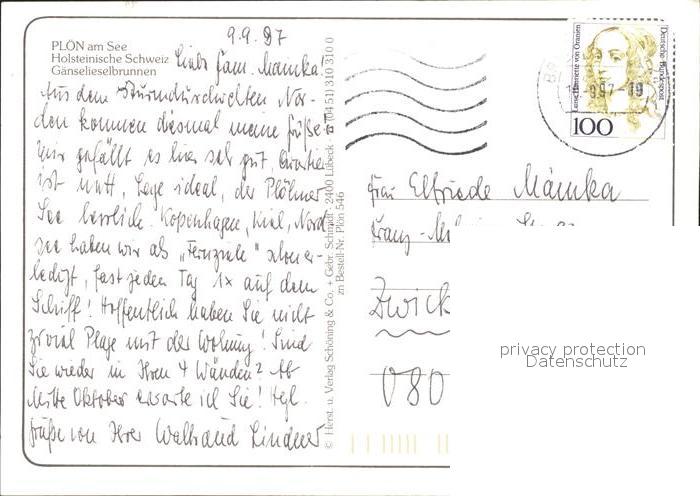 9.9.97
PLÖN am See
Holsteinische Schweiz
Gänselieselbrunnen
Liebe Fam. Mämka!
Aus dem Sturmdurchwehten Nor-
den kommen diesmal meine Grüße.
Mir gefällt es hier sehr gut, Quartier
ist nett, Lage ideal, der Plöhner
See herrlich. Kopenhagen, Kiel, Nord
see haben wir als „Fernziele" schon er-
ledigt, fast jeden Tag 1x auf dem
Schiff! Hoffentlich haben Sie nicht
zu viel Plage mit der Wohnung! Sind
Sie wieder in Ihren 4 Wänden? Ab
Mitte Oktober erwarte ich Sie! Hgl.
Grüße von Ihrer Waltraud Lindner
© Herst. u. Verlag Schöning & Co. + Gebr. Schmidt · 2400 Lübeck · (04 51) 310 310 0
zu Bestell-Nr. Plön 546
Deutsche Bundespost
Luise Henriette von Oranien
100
9.97-19
Frau Elfriede Mämka
Franz-
Zwick
080
privacy protection
Datenschutz